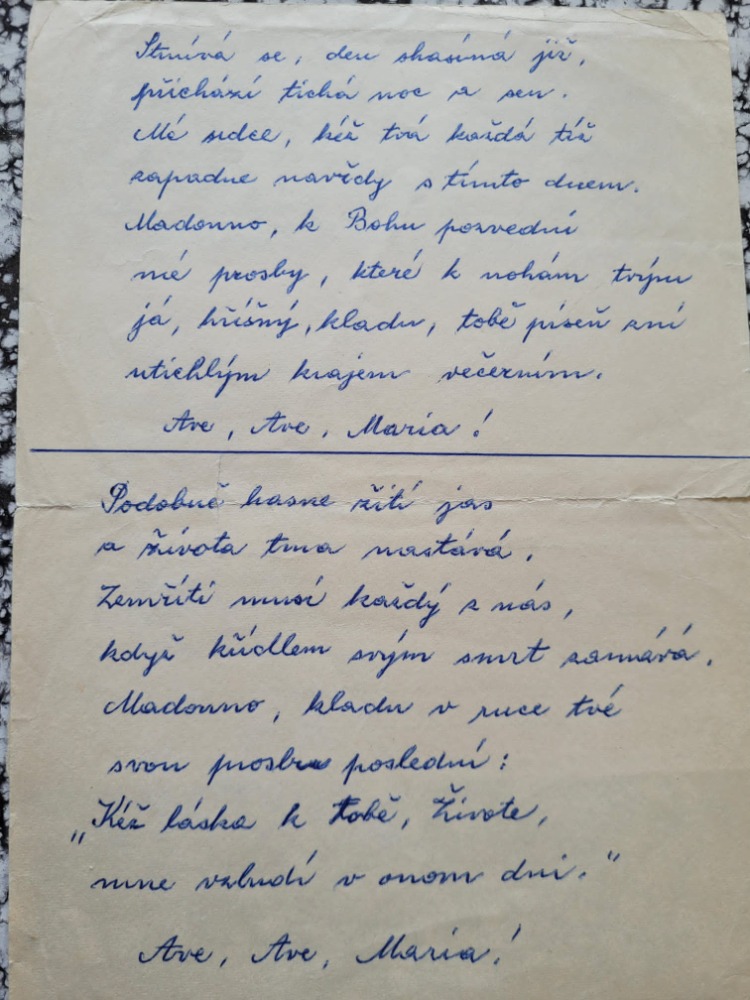 Stmívá se, den skasíná již,
přichází tichá noc a sen.
Mé srdce, kéž tvá každá tíž
zapadne navždy s tímto dnem.
Madonno, k Bohu pozvedni
mé prosby, které k nohám tvým
já, hříšný, kladu, tobě píseň zní
utichlým krajem večerním.
Ave, Ave, Maria!
Podobně hasne žití jas
a života tma nastává,
Zemříti musí každý z nás,
když křídlem svým smrt zamává.
Madonno, kladu v ruce tvé
svou prosbu poslední:
„Kéž láska k Tobě, Živote,
mne vzbudí v onom dni.“
Ave, Ave, Maria!